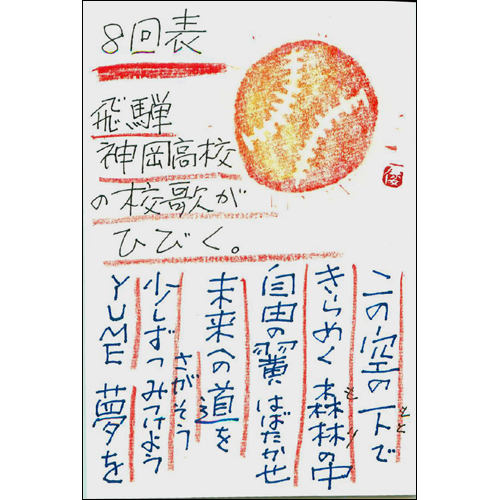 8回表
飛騨
神岡高校
の校歌が
ひびく。
この空の下で
きらめく森林の中
自由の翼はばたかせ
未来への道を
さがそう
少しずつみつけよう
YUME 夢を